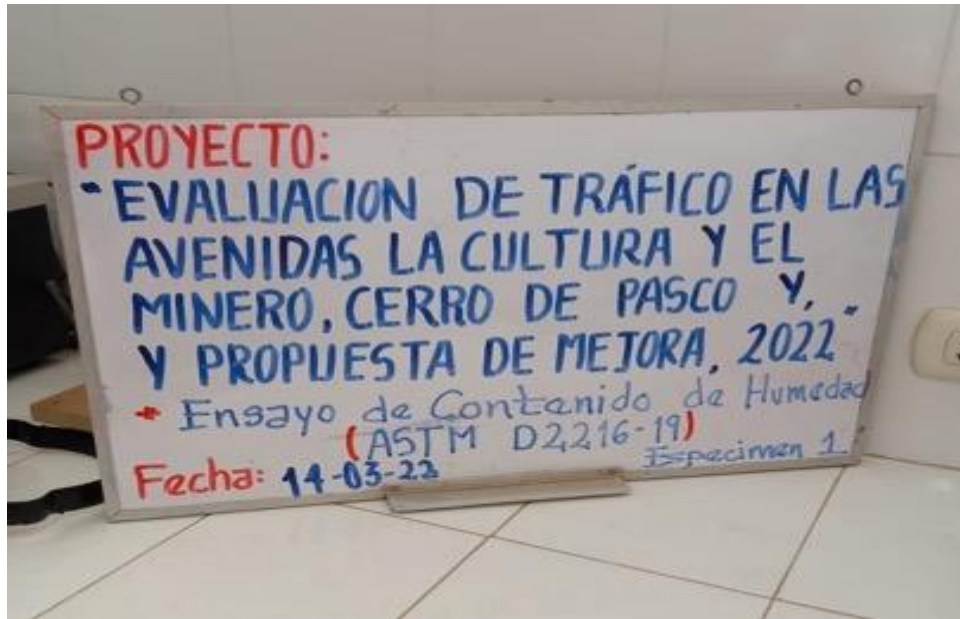 PROYECTO:
"EVALUACION DE TRÁFICO EN LAS
AVENIDAS LA CULTURA Y EL
MINERO, CERRO DE PASCO Y,
Y PROPUESTA DE MEJORA, 2022"
+ Ensayo de Contenido de Humedad
(ASTM D2216-19)
Especimen 1
Fecha: 14-03-23